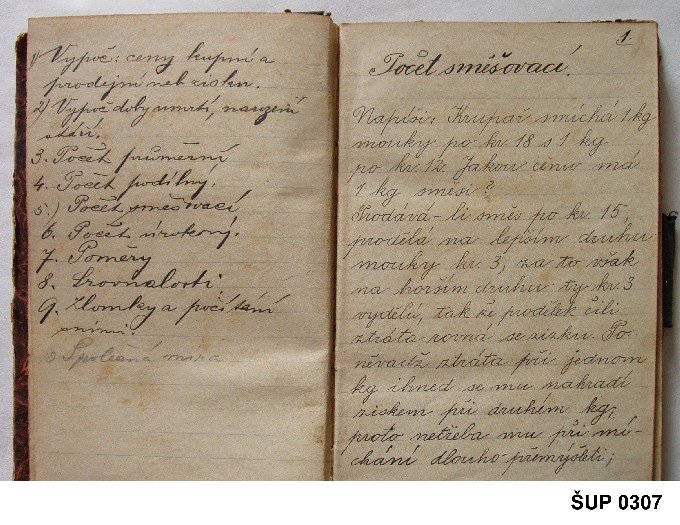 1) Vypoč: ceny kupní a
prodejní neb zisku.
2) Vypoč doby úmrtí, narození
stáří.
3. Počet průměrní
4. Počet podílný.
5.) Počet směšovací
6. Počet úrokový.
7. Poměry
8. Srovnalosti.
9. Zlomky a počítání
s nimi.
Společná míra
1.
Počet směšovací.
Napíši: Krupař smíchá 1 kg
mouky po kr. 18 s 1 kg
po kr. 12. Jakou cenu má
1 kg směsi?
Prodává-li směs po kr. 15,
prodělá na lepším druhu
mouky kr. 3, za to však
na horším druhu ty kr. 3
vydělá, tak že prodělek čili
ztráta rovná se zisku. Po-
něvadž ztráta při jednom
kg ihned se mu nahradí
ziskem při druhém kg,
proto netřeba mu při mí-
chání dlouho přemýšleti;
ŠUP 0307